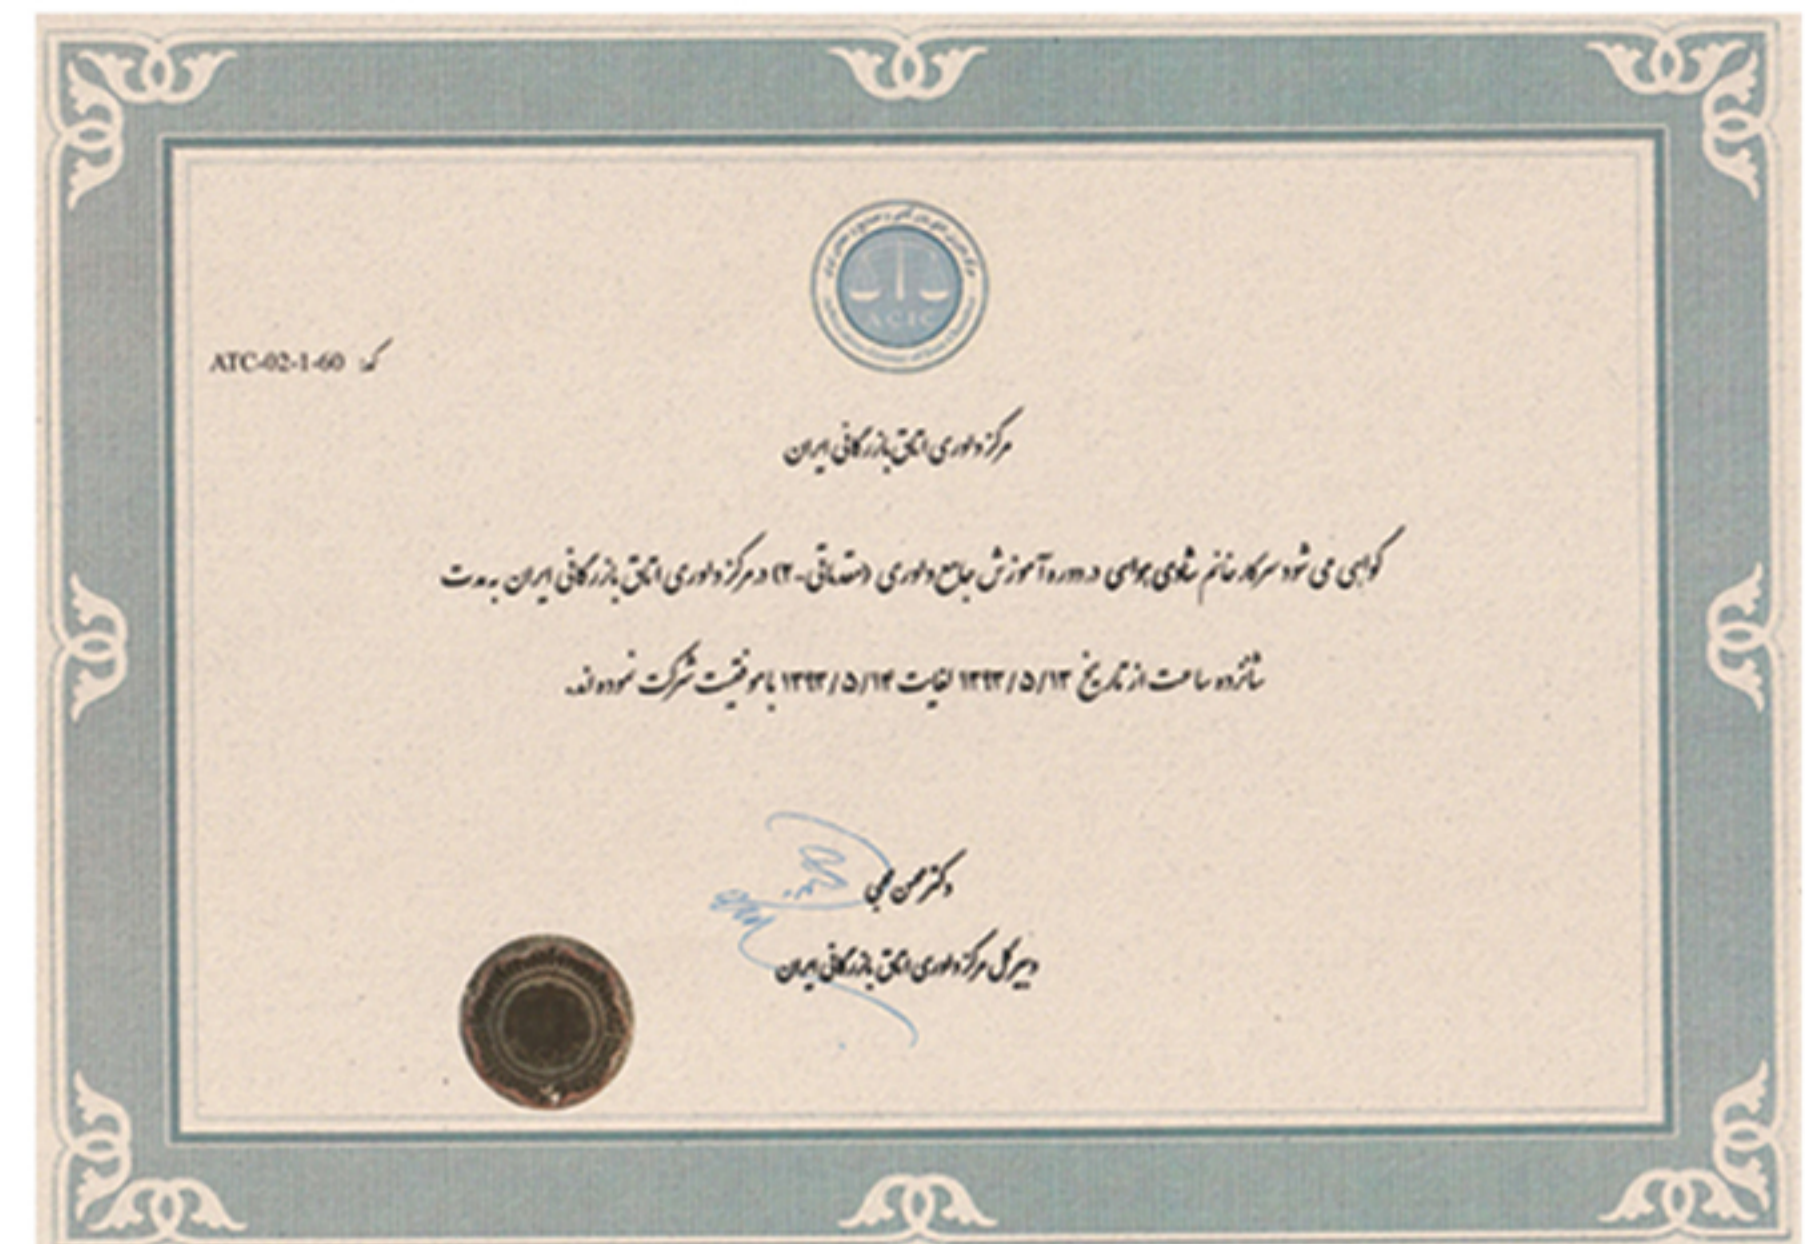 ACIC
کد: ATC-02-1-60
مرکز داوری اتاق بازرگانی ایران
گواهی می شود سرکار خانم شادی جوامی در دوره آموزش جامع داوری (مقدماتی-۲) در مرکز داوری اتاق بازرگانی ایران به مدت
شانزده ساعت از تاریخ ۱۳۹۳/۵/۱۳ لغایت ۱۳۹۳/۵/۱۴ با موفقیت شرکت نموده اند.
دکتر محسن محبی
دبیر کل مرکز داوری اتاق بازرگانی ایران